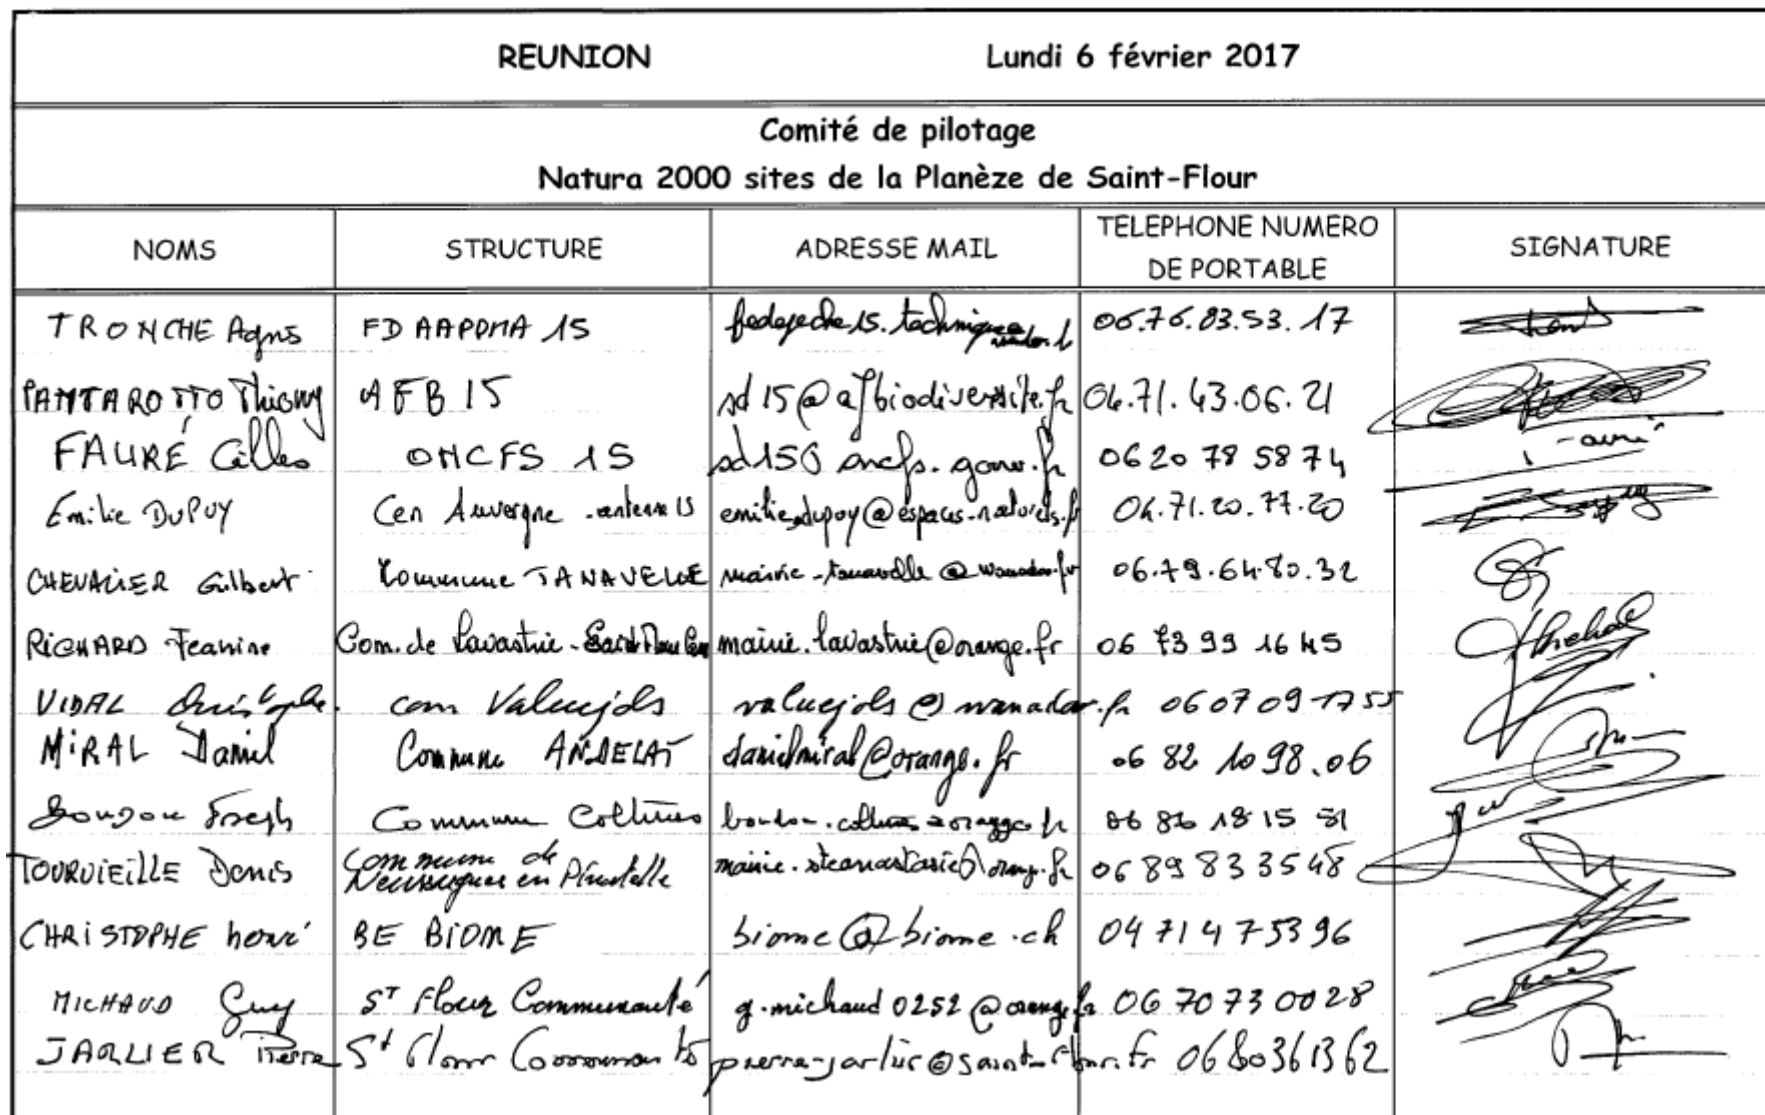 REUNION Lundi 6 février 2017
Comité de pilotage
Natura 2000 sites de la Planèze de Saint-Flour
NOMS STRUCTURE ADRESSE MAIL TELEPHONE NUMERO DE PORTABLE SIGNATURE
TRONCHE Agnès FDAAPPMA 15 06.76.83.53.17
PANTAROTTO Thierry AFB 15 sd15@afbiodiversite.fr 04.71.43.06.21
FAURÉ Gilles ONCFS 15 06 20 78 58 74
Emilie DUPUY Cen Auvergne - antenne 15 emilie.dupuy@espaces-naturels.fr 04.71.20.77.20
CHEVALIER Gilbert Commune TANAVELLE mairie-tanavelle@wanadoo.fr 06.79.64.80.32
RICHARD Jeanine Com. de Lavastrie - mairie.lavastrie@orange.fr 06 73 99 16 45
VIDAL Christophe. com Valuejols valuejols@wanadoo.fr 06 07 09 17 55
MIRAL Daniel Commune ANDELAT danielmiral@orange.fr 06 82 10 98.06
Joseph Commune Coltines 06 86 18 15 81
TOURVIEILLE Denis Commune de Neussargues en Pinatelle mairie.steanastasie@orange.fr 06 89 83 35 48
CHRISTOPHE henri BE BIOME biome@biome.ch 04 71 47 53 96
MICHAUD Guy ST Flour Communauté g.michaud0252@orange.fr 06 70 73 00 28
JARLIER Pierre St Flour Communauté pierre-jarlier@saint-flour.fr 06 80 36 13 62